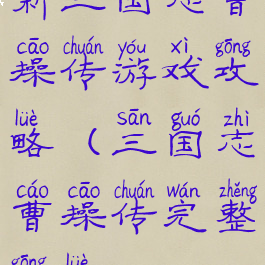 新三国志曹
cāo chuán yóu xì gōng
操传游戏攻
lüè sān guó zhì
略（三国志
cáo cāo chuán wán zhěng
曹操传完整
gōng lüè